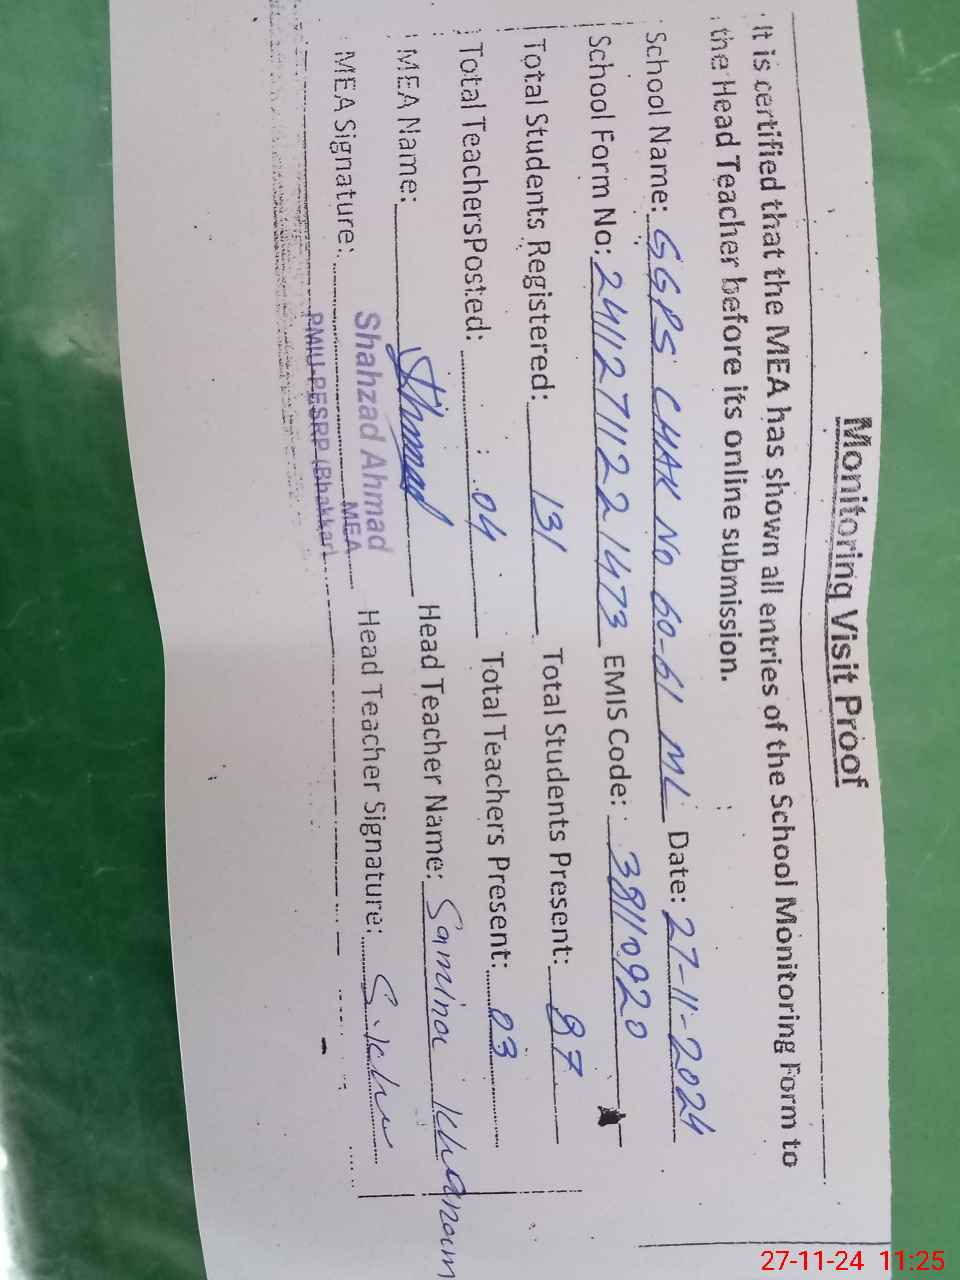 Monitoring Visit Proof
It is certified that the MEA has shown all entries of the School Monitoring Form to
the Head Teacher before its online submission.
School Name: GGPS CHAK NO 60-61 ML Date: 27-11-2024
School Form No: 24112711221473 EMIS Code: 38110920
Total Students Registered: 131 Total Students Present: 87
Total TeachersPosted: 04 Total Teachers Present: 03
MEA Name: Ahmad Head Teacher Name: Samina Khanam
MEA Signature: Head Teacher Signature:
Shahzad Ahmad
MEA
PMIU-PESRP (Bhakkar)
27-11-24 11:25